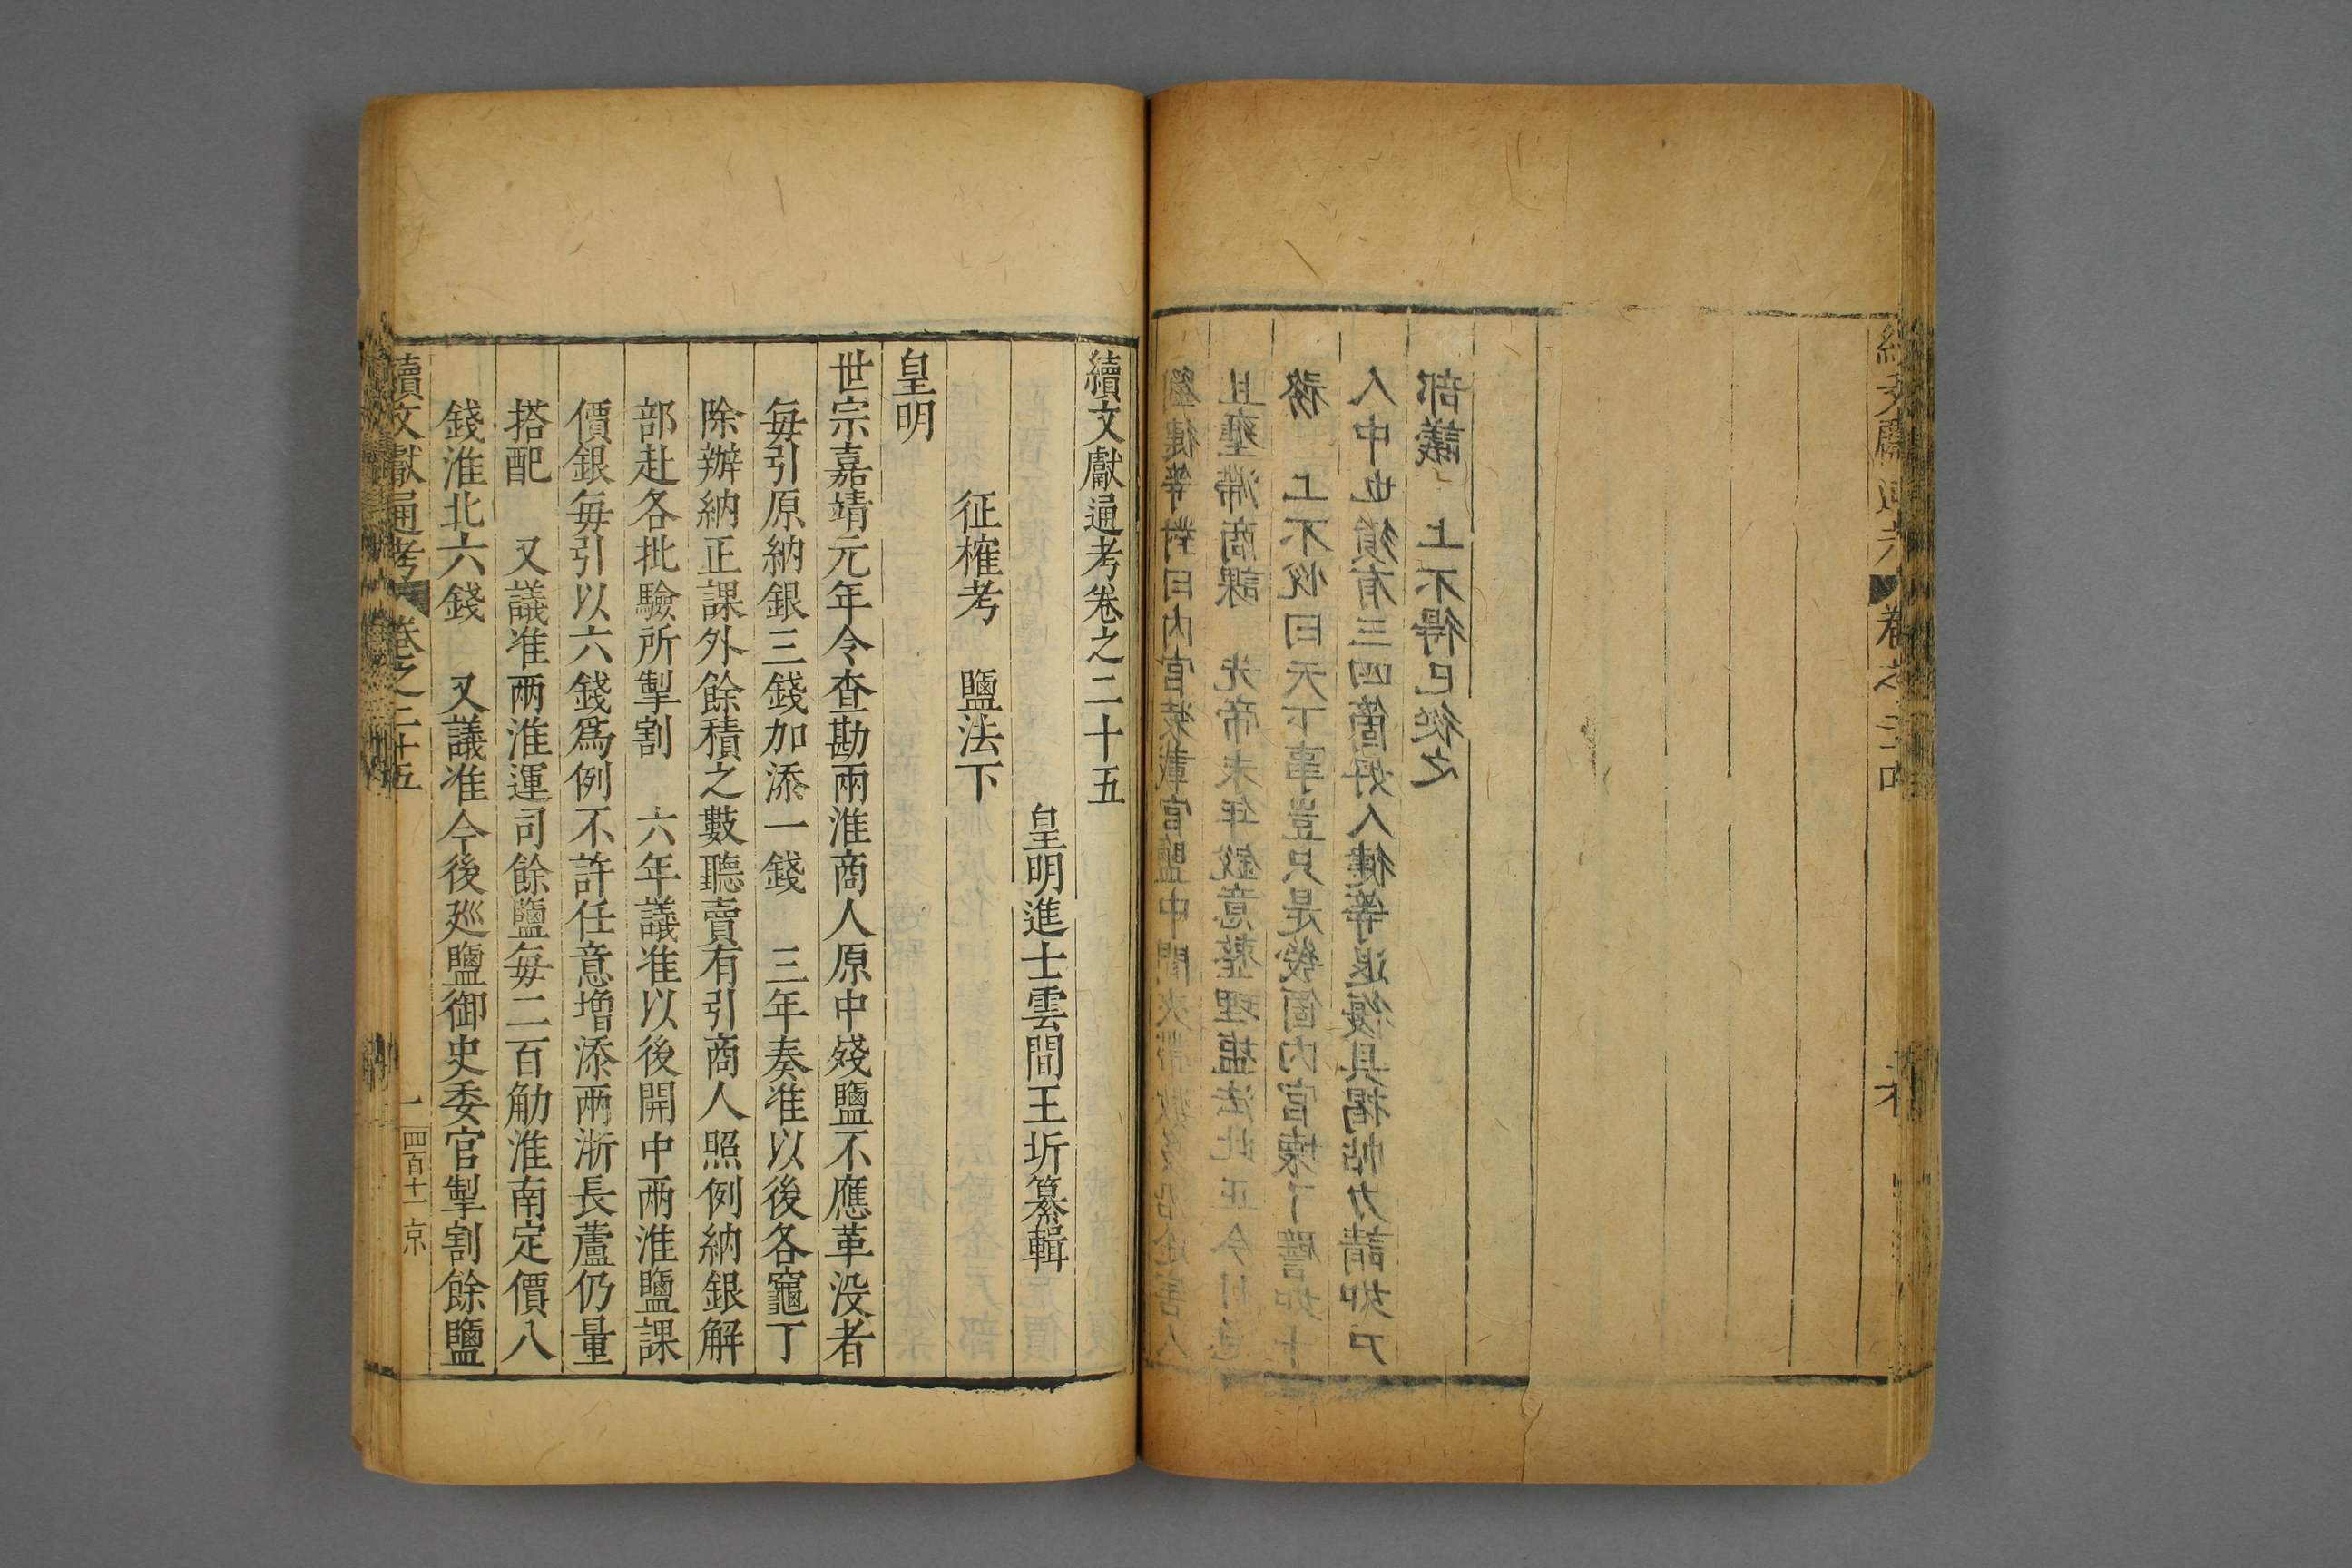 續文獻通考 卷之二十四
劉健等對曰內官裝載官鹽中間夾帶數多沿途害人
且壅滯商課 先帝末年銳意整理塩法此正今日急
務 上不悅曰天下事豈只是幾個內官壞了譬如十
人中也須有三四箇好人健等退復具揭帖力請如戶
部議 上不得已從之
續文獻通考卷之二十五
皇明進士雲間王圻纂輯
征榷考 鹽法下
皇明
世宗嘉靖元年令查勘兩淮商人原中殘鹽不應革没者
每引原納銀三錢加添一錢 三年奏准以後各竈丁
除辦納正課外餘積之數聽賣有引商人照例納銀解
部赴各批驗所掣割 六年議准以後開中兩淮鹽課
價銀每引以六錢爲例不許任意增添兩浙長蘆仍量
搭配 又議准兩淮運司餘鹽每二百觔淮南定價八
錢淮北六錢 又議准今後廵鹽御史委官掣割餘鹽
續文獻通考 卷之二十五 一 四百十一 京